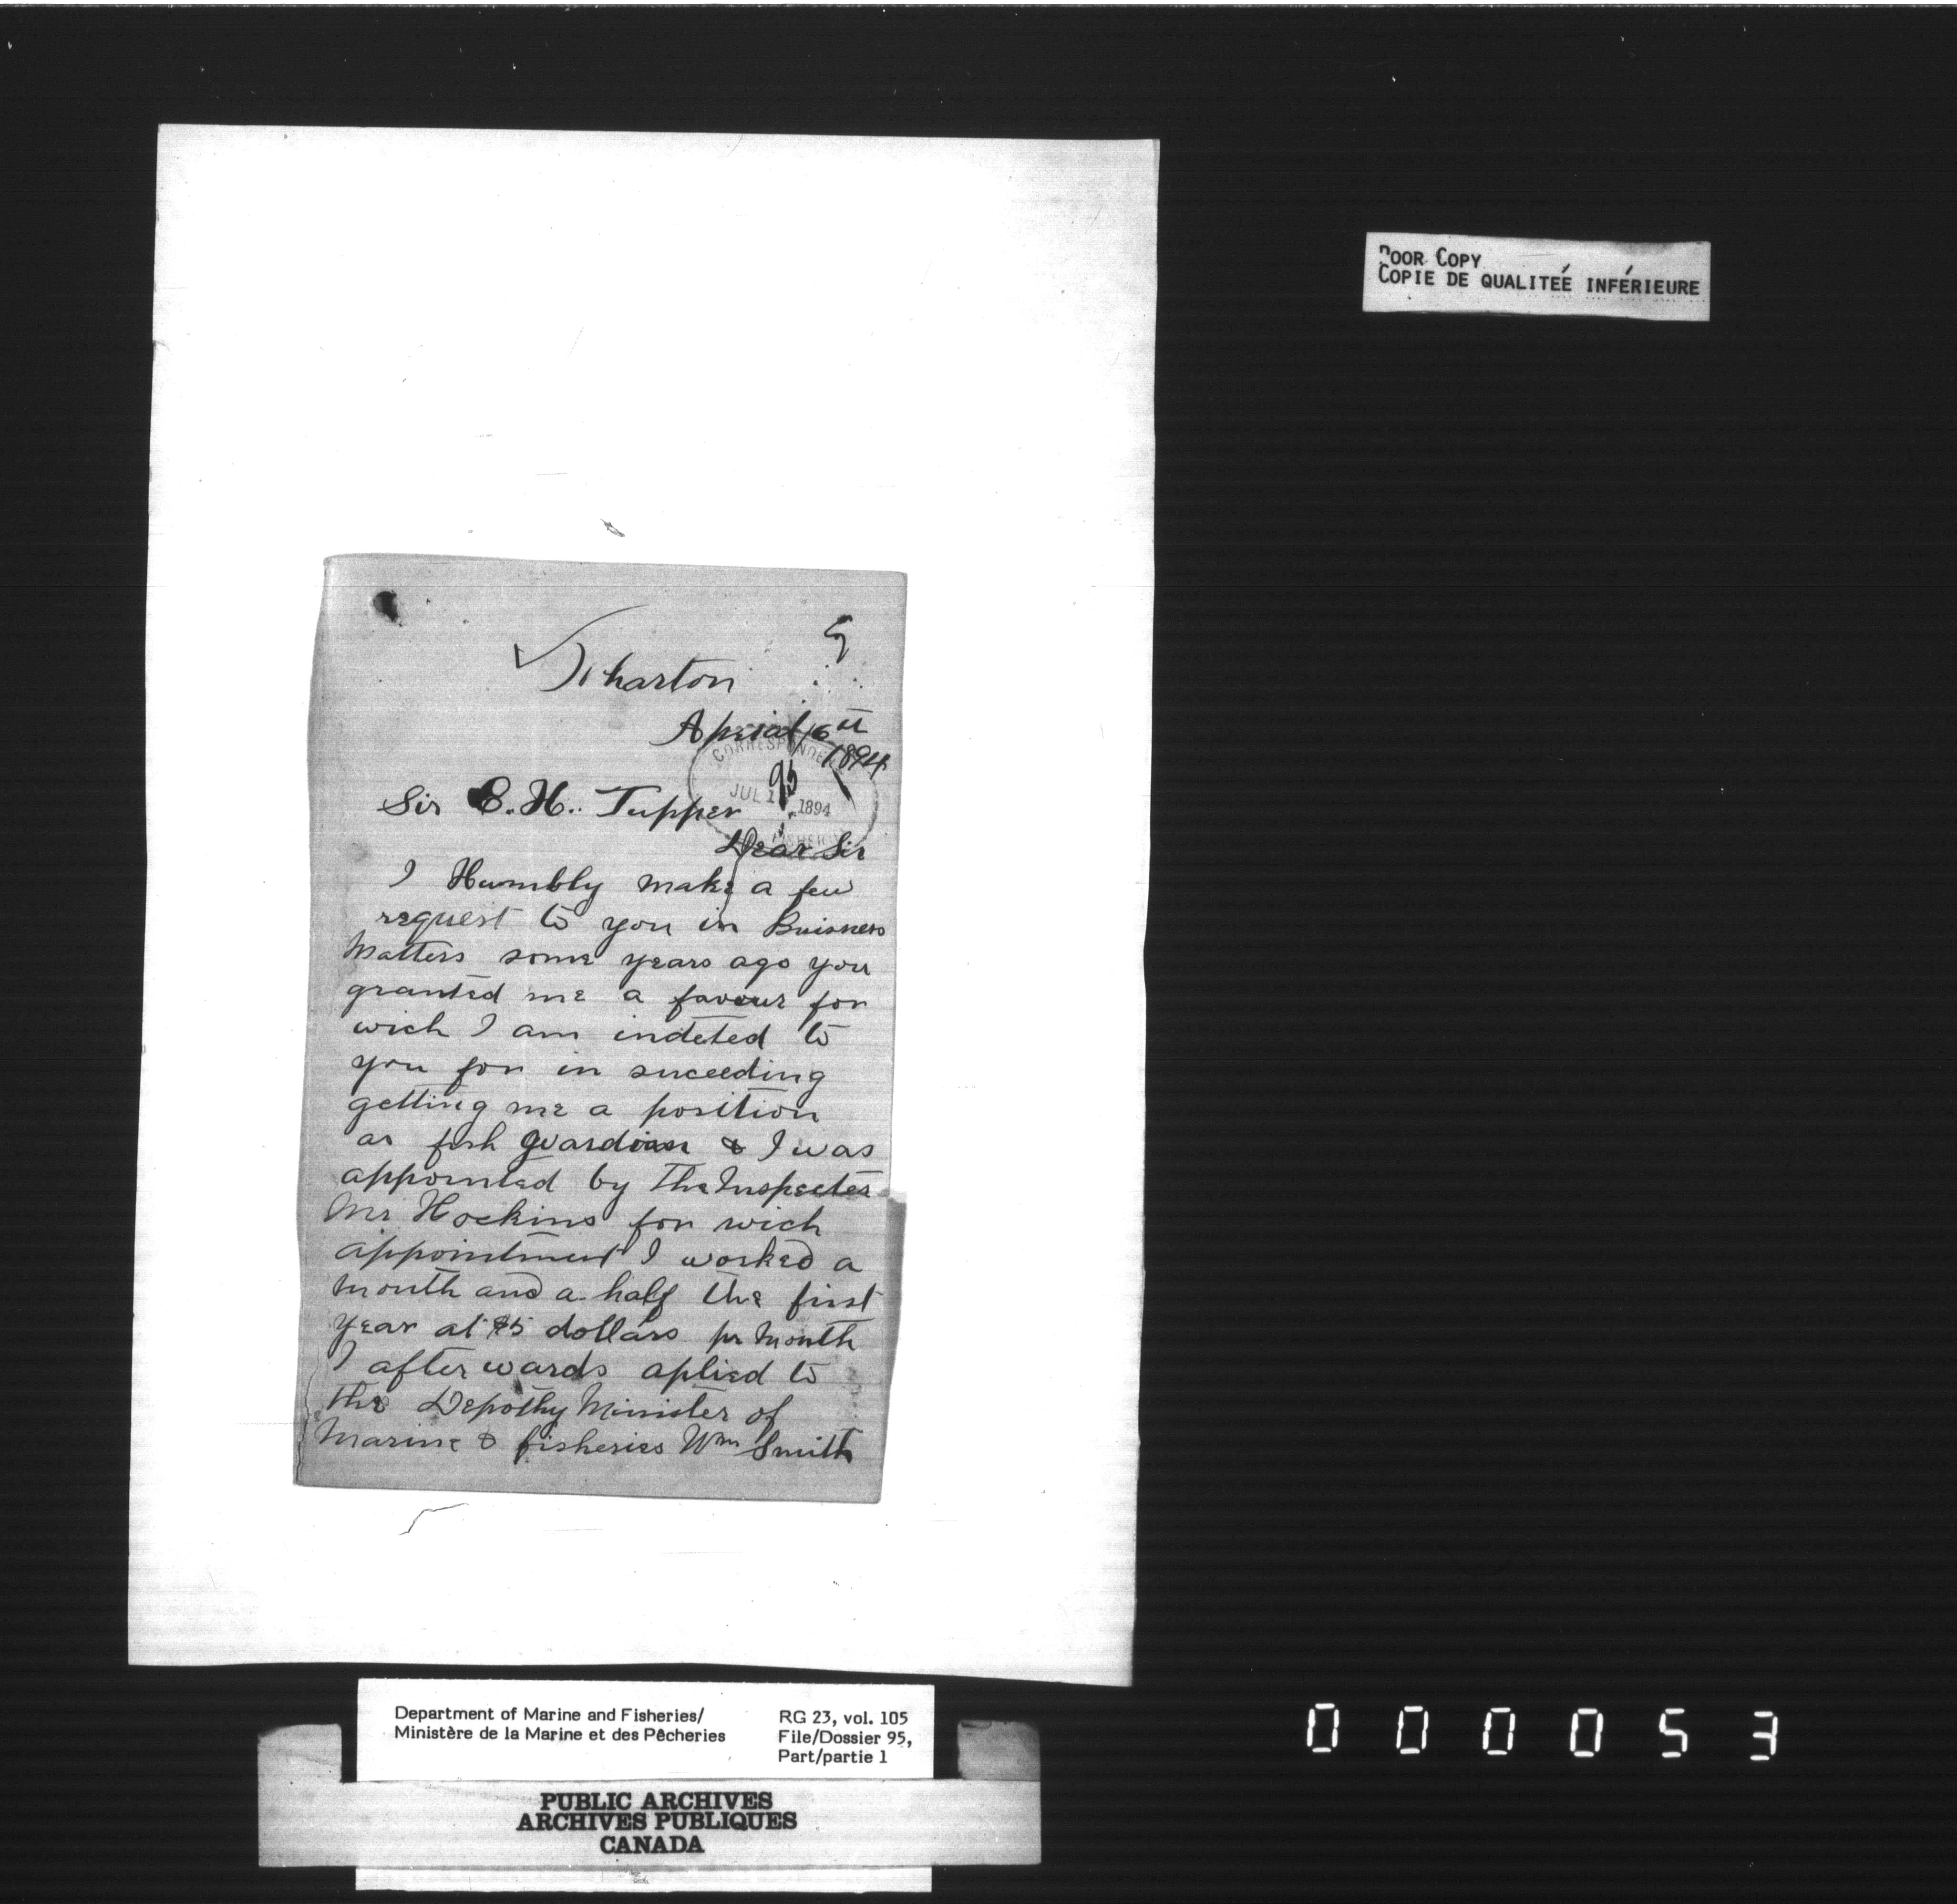 POOR COPY
COPIE DE QUALITEÉ INFÉRIEURE
Wharton
Apeial 16th
1894
CORRESPONDENCE
95
JUL 1 1894
FISHERI
Sir C. H. Tupper
Dear Sir
I Humbly make a few
request to you in Buisness
Matters some years ago you
granted me a favour for
wich I am indeted to
you for in suceeding
getting me a position
as fish guardian & I was
appointed by the Inspecter
Mr Hockins for wich
appointment I worked a
month and a half the first
year at $5 dollars pr Month
I after wards aplied to
the Depothy Minister of
Marine & fisheries Wm Smith
Department of Marine and Fisheries/
Ministère de la Marine et des Pêcheries
RG 23, vol. 105
File/Dossier 95,
Part/partie 1
PUBLIC ARCHIVES
ARCHIVES PUBLIQUES
CANADA
000053